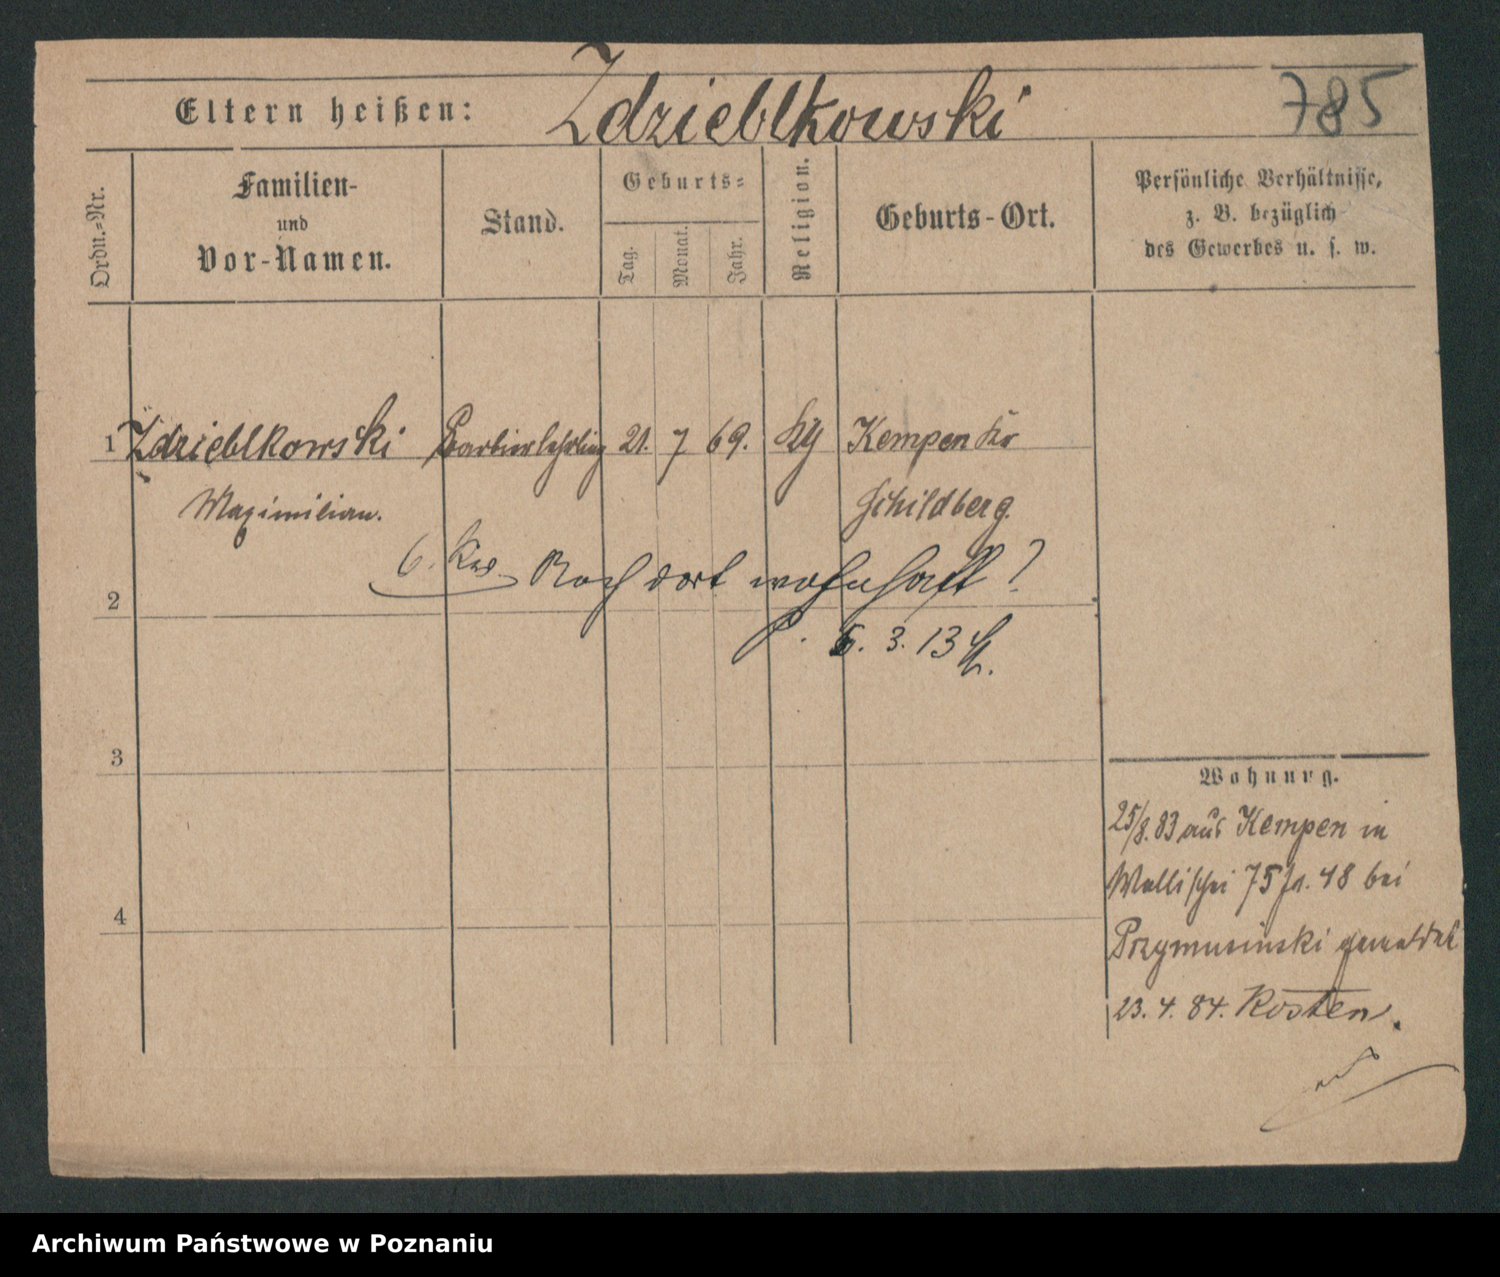 Eltern heißen: Zdzieblkowski 785
Ordn.-Nr.
Familien-
und
Vor-Namen.
Stand.
Geburts-
Tag. Monat. Jahr.
Religion.
Geburts-Ort.
Persönliche Verhältnisse,
z. B. bezüglich
des Gewerbes u. s. w.
1 Zdzieblkowski Barbierlehrling 21. 7 69. Kempen Kr
Maximilian. Schildberg.
6. Rev. Noch dort wohnhaft?
2
P. 6. 3. 13
3
4
Wohnung.
25/8.83 aus Kempen in
Wallischei 75 48 bei
Przymusinski gemeldet
23. 4. 84. Kosten.
Archiwum Państwowe w Poznaniu